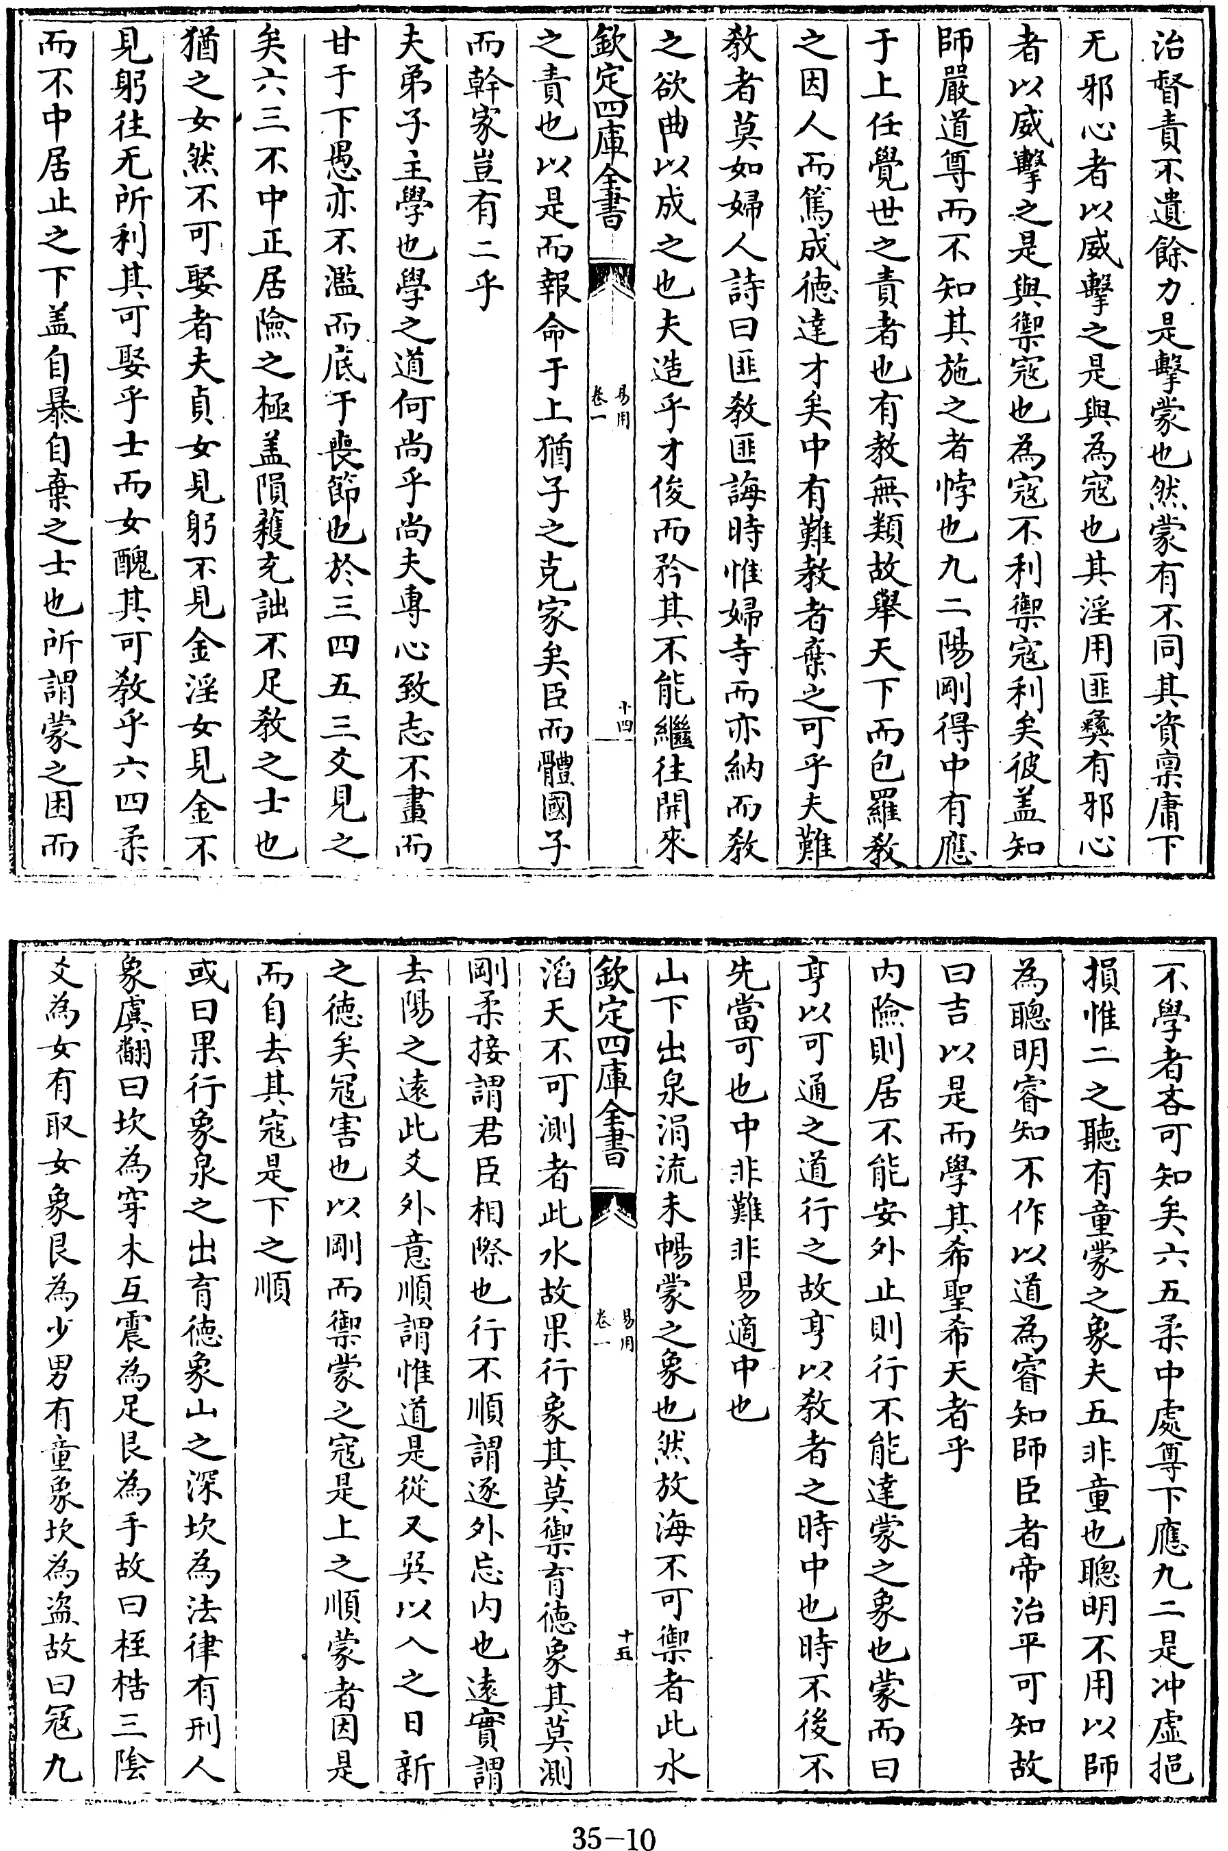 治督責不遺餘力是擊蒙也然蒙有不同其資稟庸下
无邪心者以威擊之是與為寇也其淫用匪彝有邪心
者以威擊之是與禦寇也為寇不利禦寇利矣彼盖知
師嚴道尊而不知其施之者悖也九二陽剛得中有應
于上任覺世之責者也有教無類故舉天下而包羅教
之因人而篤成德達才矣中有難教者棄之可乎夫難
教者莫如婦人詩曰匪教匪誨時惟婦寺而亦納而教
之欲曲以成之也夫造乎才俊而矜其不能繼往開來
欽定四庫全書
易用
卷一
十四
之責也以是而報命于上猶子之克家矣臣而體國子
而幹家豈有二乎
夫弟子主學也學之道何尚乎尚夫專心致志不畫而
甘于下愚亦不濫而底于喪節也於三四五三爻見之
矣六三不中正居險之極盖隕穫充詘不足教之士也
猶之女然不可娶者夫貞女見躬不見金淫女見金不
見躬往无所利其可娶乎士而女醜其可教乎六四柔
而不中居止之下盖自暴自棄之士也所謂蒙之困而
不學者吝可知矣六五柔中處尊下應九二是冲虛挹
損惟二之聽有童蒙之象夫五非童也聰明不用以師
為聰明睿知不作以道為睿知師臣者帝治平可知故
曰吉以是而學其希聖希天者乎
内險則居不能安外止則行不能達蒙之象也蒙而曰
亨以可通之道行之故亨以教者之時中也時不後不
先當可也中非難非易適中也
山下出泉涓流未暢蒙之象也然放海不可禦者此水
欽定四庫全書
易用
卷一
十五
滔天不可測者此水故果行象其莫禦育德象其莫測
剛柔接謂君臣相際也行不順謂逐外忘内也遠實謂
去陽之遠此爻外意順謂惟道是從又巽以入之日新
之德矣寇害也以剛而禦蒙之寇是上之順蒙者因是
而自去其寇是下之順
或曰果行象泉之出育德象山之深坎為法律有刑人
象虞翻曰坎為穿木互震為足艮為手故曰桎梏三陰
爻為女有取女象艮為少男有童象坎為盜故曰寇九
35-10